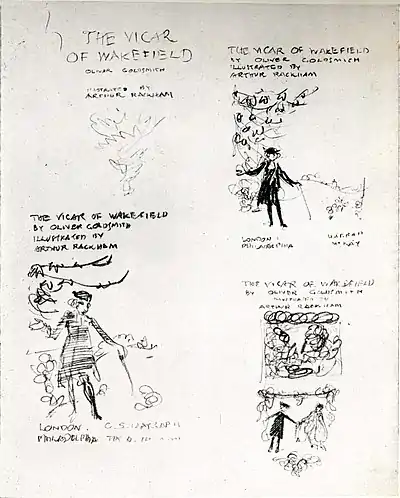 THE VICAR
OF WAKEFIELD
OLIVER GOLDSMITH
ILLUSTRATED BY
ARTHUR RACKHAM
THE VICAR OF WAKEFIELD
BY OLIVER GOLDSMITH
ILLUSTRATED BY
ARTHUR RACKHAM
LONDON
PHILADELPHIA
THE VICAR OF WAKEFIELD
BY OLIVER GOLDSMITH
ILLUSTRATED BY
ARTHUR RACKHAM
LONDON.
PHILADELPHIA
THE VICAR OF WAKEFIELD
BY OLIVER GOLDSMITH
ILLUSTRATED BY
ARTHUR RACKHAM